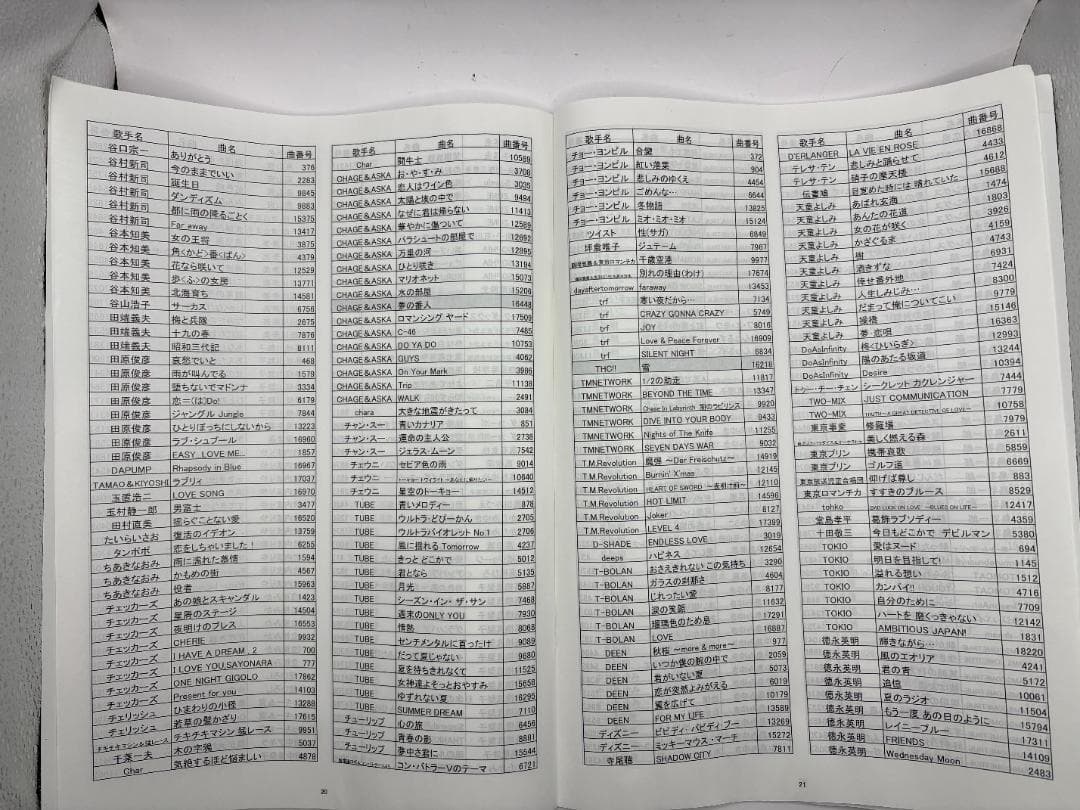 歌手名 曲名 曲番号
谷口宗一 ありがとう 376
谷村新司 今のままでいい 2283
谷村新司 誕生日 9845
谷村新司 ダンディズム 9883
谷村新司 都に雨の降るごとく 15375
谷村新司 Far away 13417
谷本知美 女の王将 3875
谷本知美 角<かど>番<ばん> 4379
谷本知美 花なら咲いて 12529
谷本知美 歩<ふ>の女房 13771
谷本知美 北海育ち 14581
谷山浩子 サーカス 6756
田端義夫 梅と兵隊 2675
田端義夫 十九の春 7876
田端義夫 昭和三代記 8111
田原俊彦 哀愁でいと 468
田原俊彦 雨が叫んでる 1579
田原俊彦 堕ちないでマドンナ 3334
田原俊彦 恋=(は)Do! 6179
田原俊彦 ジャングル Jungle 7844
田原俊彦 ひとりぼっちにしないから 13223
田原俊彦 ラブ・シュプール 16960
田原俊彦 EASY...LOVE ME... 1857
DAPUMP Rhapsody in Blue 16967
TAMAO&KIYOSHI ラブリィ 17037
玉置浩二 LOVE SONG 16970
玉村静一郎 男富士 3477
田村直美 揺らぐことない愛 16520
たいらいさお 復活のイデオン 13759
タンポポ 恋をしちゃいました! 6255
ちあきなおみ 雨に濡れた慕情 1594
ちあきなおみ かもめの街 4567
ちあきなおみ 役者 15963
チェッカーズ あの娘とスキャンダル 1423
チェッカーズ 星屑のステージ 14504
チェッカーズ 夜明けのブレス 16553
チェッカーズ CHERIE 9932
チェッカーズ I HAVE A DREAM #2 700
チェッカーズ I LOVE YOU,SAYONARA 777
チェッカーズ ONE NIGHT GIGOLO 17862
チェッカーズ Present for you 14103
チェリッシュ ひまわりの小径 13288
チェリッシュ 若草の髪かざり 17615
チキチキマシン猛レース 9951
千葉一夫 木の字鴉 5037
Char 気絶するほど悩ましい 4878
歌手名 曲名 曲番号
Char 闘牛士 10589
CHAGE&ASKA お・や・す・み 3706
CHAGE&ASKA 恋人はワイン色 3035
CHAGE&ASKA 太陽と埃の中で 9494
CHAGE&ASKA なぜに君は帰らない 11413
CHAGE&ASKA 華やかに傷ついて 12569
CHAGE&ASKA パラシュートの部屋で 12692
CHAGE&ASKA 万里の河 12895
CHAGE&ASKA ひとり咲き 13194
CHAGE&ASKA マリオネット 15073
CHAGE&ASKA 水の部屋 15206
CHAGE&ASKA 夢の番人 16448
CHAGE&ASKA ロマンシング ヤード 17509
CHAGE&ASKA C-46 7485
CHAGE&ASKA DO YA DO 10753
CHAGE&ASKA GUYS 4062
CHAGE&ASKA On Your Mark 3996
CHAGE&ASKA Trip 11138
CHAGE&ASKA WALK 2491
chara 大きな地震がきたって 3084
チャン・スー 青いカナリア 851
チャン・スー 運命の主人公 2738
チャン・スー ジェラス・ムーン 7542
チェウニ セピア色の雨 9014
チェウニ 10640
チェウニ 星空のトーキョー 14512
TUBE 青いメロディー 878
TUBE ウルトラ・どぴーかん 2705
TUBE ウルトラバイオレット No.1 2706
TUBE 風に揺れる Tomorrow 4237
TUBE きっと どこかで 5012
TUBE 君となら 5135
TUBE 月光 5887
TUBE シーズン・イン・ザ・サン 7468
TUBE 週末のONLY YOU 7930
TUBE 情熱 8068
TUBE センチメンタルに首ったけ 9089
TUBE だって夏じゃない 9680
TUBE 夏を待ちきれなくて 11525
TUBE 女神達よそっとおやすみ 15658
TUBE ゆずれない夏 16295
TUBE SUMMER DREAM 7110
チューリップ 心の旅 6456
チューリップ 青春の影 8881
チューリップ 夢中さ君に 15544
コン・バトラーVのテーマ 6721
20
歌手名 曲名 曲番号
チョー・ヨンピル 合鍵 372
チョー・ヨンピル 紅い落葉 904
チョー・ヨンピル 悲しみのゆくえ 4454
チョー・ヨンピル ごめんな… 6644
チョー・ヨンピル 冬物語 13825
チョー・ヨンピル ミオ・ミオ・ミオ 15124
ツイスト 性(サガ) 6849
坪倉唯子 ジュテーム 7967
千歳空港 9977
別れの理由(わけ) 17674
dayaftertomorrow faraway 13453
trf 寒い夜だから… 7134
trf CRAZY GONNA CRAZY 5749
trf JOY 8016
trf Love & Peace Forever 16909
trf SILENT NIGHT 6834
THC!! 雪 16218
TMNETWORK 1/2の助走 11817
TMNETWORK BEYOND THE TIME 13347
TMNETWORK Chase In Labyrinth 闇のラビリンス 9920
TMNETWORK DIVE INTO YOUR BODY 9433
TMNETWORK Nights of The Knife 11255
TMNETWORK SEVEN DAYS WAR 9032
T.M.Revolution 魔弾 〜Der Freischutz〜 14919
T.M.Revolution Burnin' X'mas 12145
T.M.Revolution HEART OF SWORD 〜夜明け前〜 12110
T.M.Revolution HOT LIMIT 14596
T.M.Revolution Joker 8127
T.M.Revolution LEVEL 4 17399
D-SHADE ENDLESS LOVE 3019
deeps ハピネス 12654
T-BOLAN おさえきれない この気持ち 3290
T-BOLAN ガラスの刹那さ 4604
T-BOLAN じれったい愛 8177
T-BOLAN 涙の笑顔 11632
T-BOLAN 瑠璃色のため息 17291
T-BOLAN LOVE 16887
DEEN 秋桜 〜more & more〜 977
DEEN いつか僕の腕の中で 2059
DEEN 君がいない夏 5073
DEEN 恋が突然よみがえる 6019
DEEN 翼を広げて 10179
DEEN FOR MY LIFE 13589
ディズニー ビビディ・バビディ・ブー 13269
ディズニー ミッキーマウス・マーチ 15272
寺尾聰 SHADOW CITY 7811
歌手名 曲名 曲番号
D'ERLANGER LA VIE EN ROSE 16868
テレサ・テン 悲しみと踊らせて 4433
テレサ・テン 硝子の摩天楼 4612
伝書鳩 目覚めた時には 晴れていた 15688
天童よしみ あばれ玄海 1474
天童よしみ あんたの花道 1803
天童よしみ 女の花が咲く 3926
天童よしみ かざぐるま 4159
天童よしみ 樹 4743
天童よしみ 酒きずな 6931
天童よしみ 倖せ番外地 7424
天童よしみ 人生しみじみ… 8300
天童よしみ だまって俺についてこい 9779
天童よしみ 操橋 15146
天童よしみ 夢・恋唄 16363
DoAsInfinity 柊<ひいらぎ> 12993
DoAsInfinity 陽のあたる坂道 13244
DoAsInfinity Desire 10394
トゥー・チー・チェン シークレット カクレンジャー 7444
TWO-MIX JUST COMMUNICATION 7779
TWO-MIX TRUTH 〜A GREAT DETECTIVE OF LOVE〜 10758
東京事変 修羅場 7979
美しく燃える森 2611
東京プリン 携帯哀歌 5859
東京プリン ゴルフ道 6669
東京放送児童合唱団 仰げば尊し 883
東京ロマンチカ すすきのブルース 8529
tohko BAD LUCK ON LOVE 〜BLUES ON LIFE〜 12417
堂島孝平 葛飾ラプソディー 4359
十田敬三 今日もどこかで デビルマン 5380
TOKIO 愛はヌード 694
TOKIO 明日を目指して! 1145
TOKIO 溢れる想い 1512
TOKIO カンパイ!! 4716
TOKIO 自分のために 7709
TOKIO ハートを 磨くっきゃない 12142
TOKIO AMBITIOUS JAPAN! 1831
徳永英明 輝きながら… 18220
徳永英明 風のエオリア 4241
徳永英明 君の青 5172
徳永英明 追伸 10061
徳永英明 夏のラジオ 11504
徳永英明 もう一度 あの日のように 15794
徳永英明 レイニー ブルー 17311
徳永英明 FRIENDS 14109
徳永英明 Wednesday Moon 2483
21